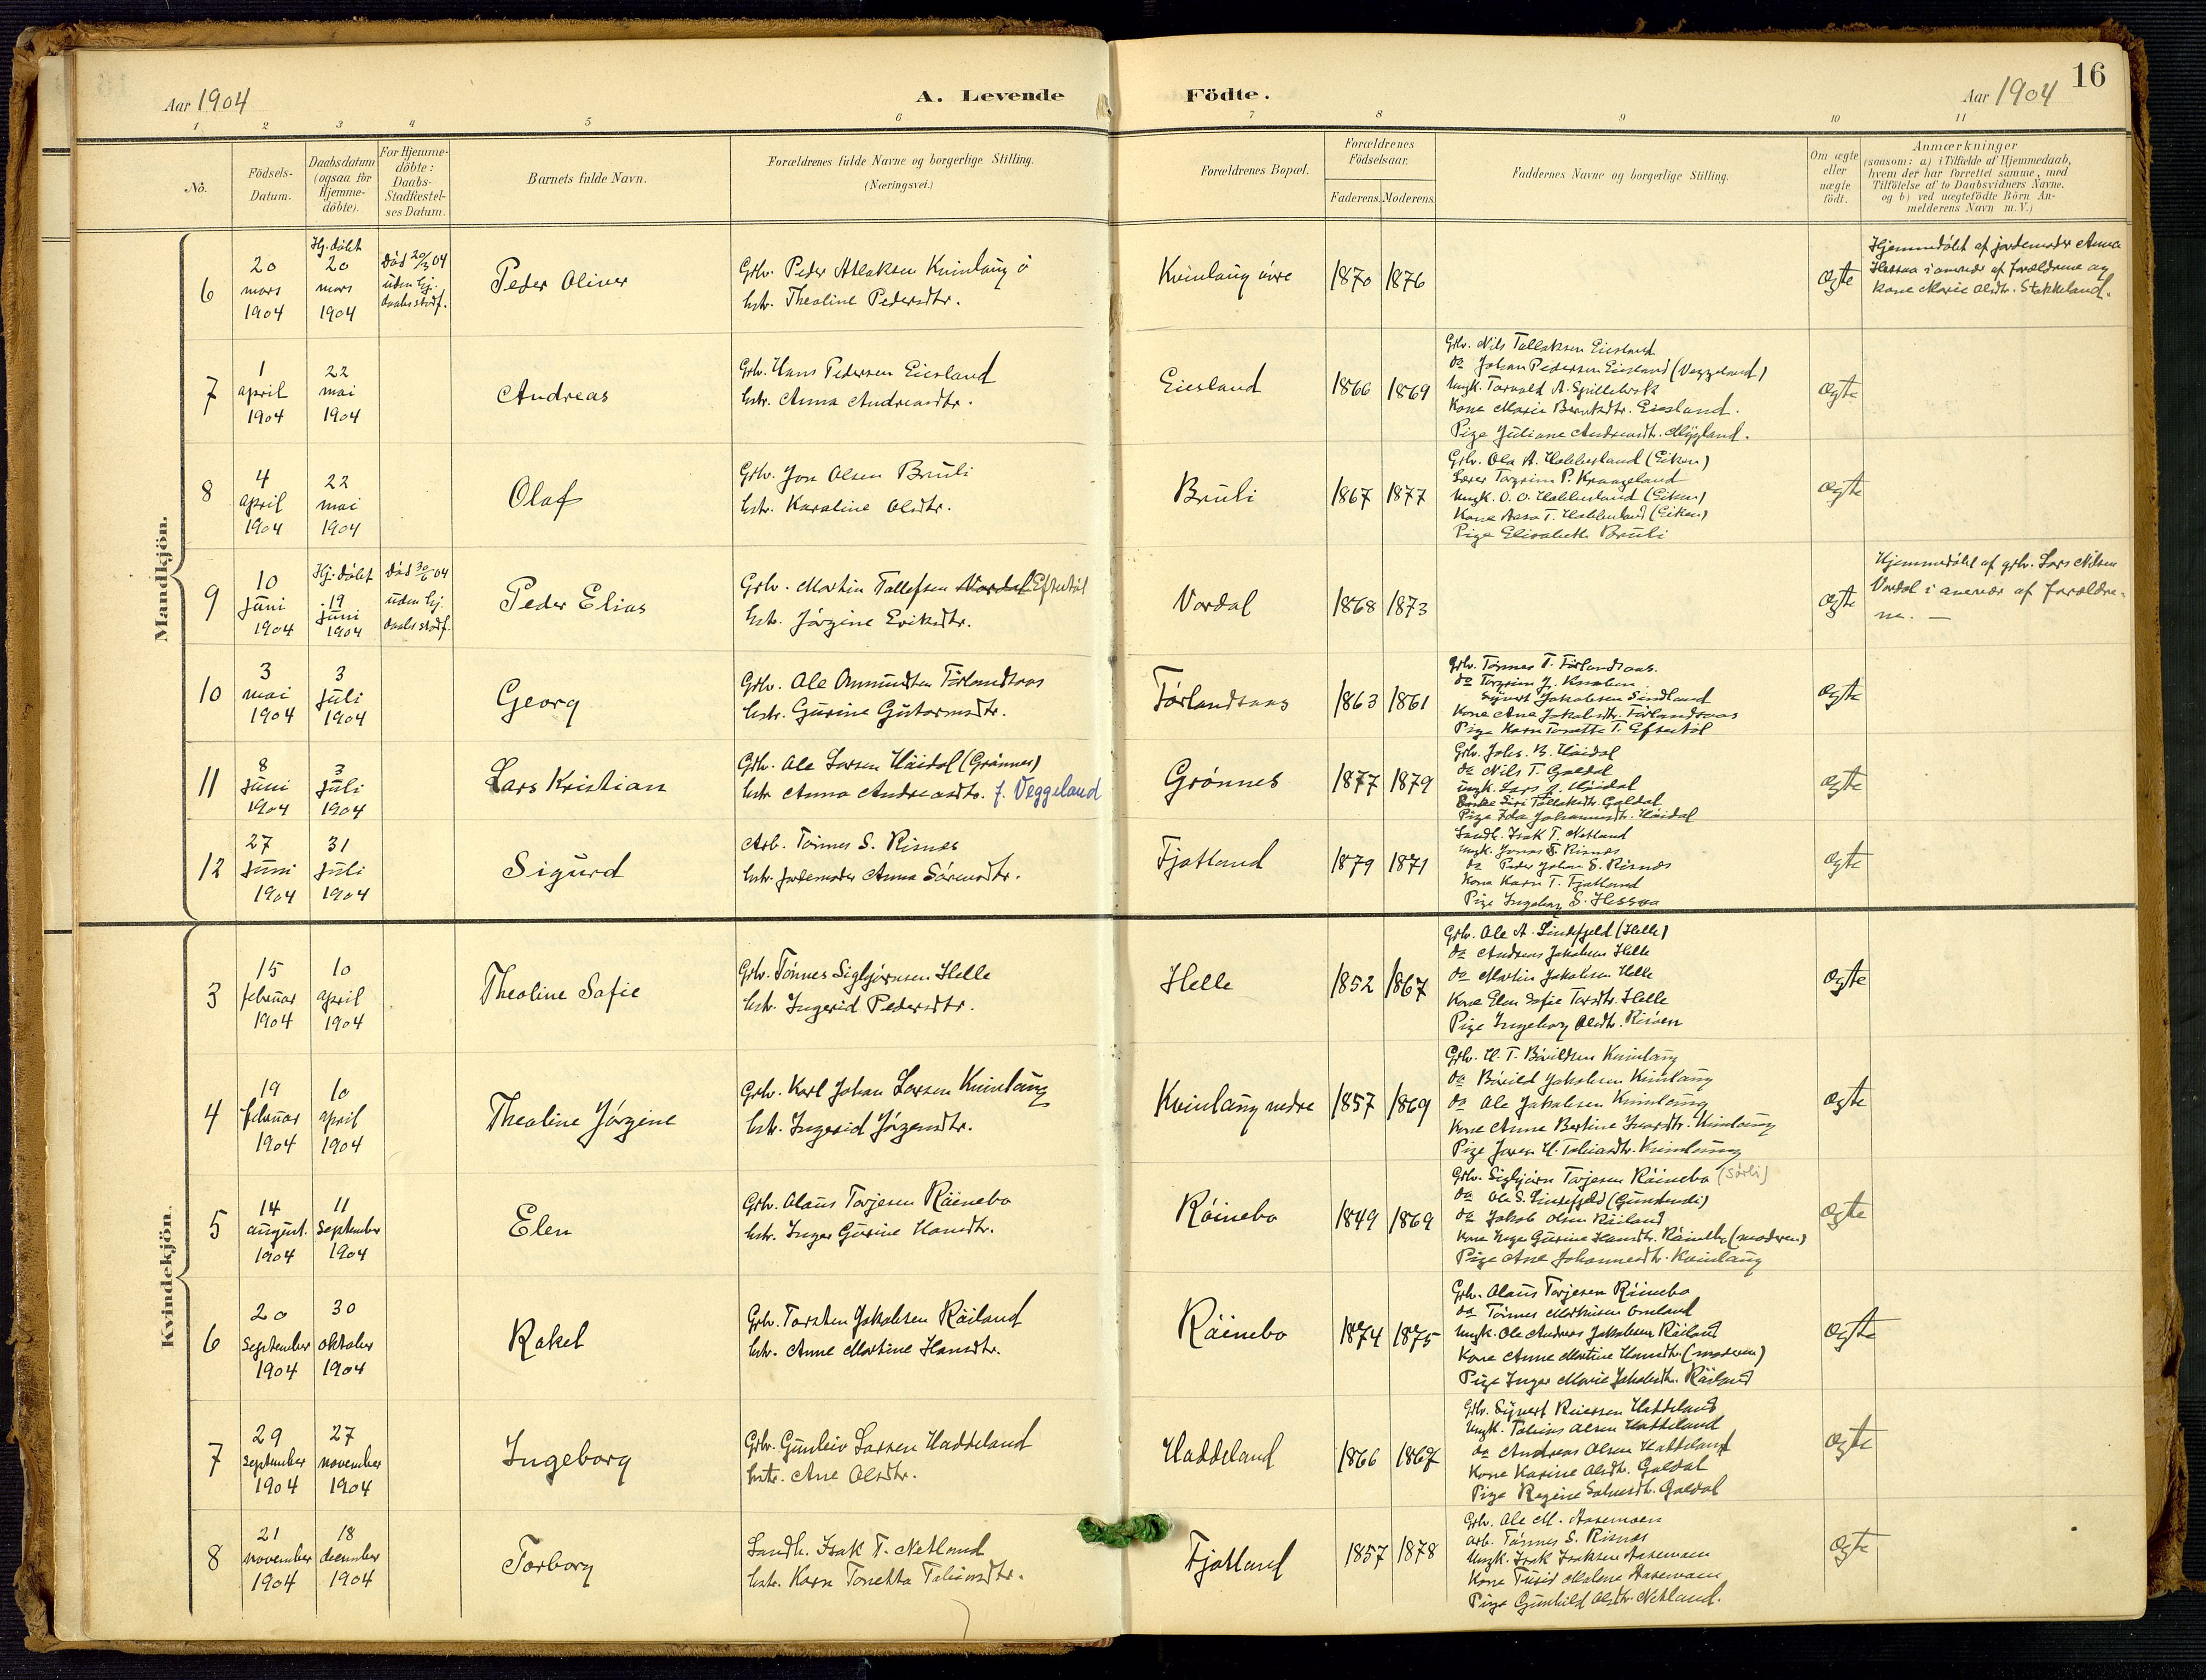 16
Aar 1904
A. Levende
Födte.
Aar 1904
1
2
3
4
5
6
7
8
9
10
11
No.
Födsels-
Datum.
Daabsdatum
(ogsaa for
Hjemme-
döbte).
For Hjemme-
döbte:
Daabs-
Stadfæstel-
ses Datum.
Barnets fulde Navn.
Forældrenes fulde Navne og borgerlige Stilling.
(Næringsvei.)
Forældrenes Bopæl.
Forældrenes
Födselsaar.
Faderens.
Moderens.
Faddernes Navne og borgerlige Stilling.
Om ægte
eller
uægte
födt.
Anmærkninger
(saasom: a) i Tilfælde af Hjemmedaab,
hvem der har forrettet samme, med
Tilföielse af to Daabsvidners Navne.
og b) ved uægtefödte Börn An-
melderens Navn m. V.)
Mandkjön.
6
20
mars
1904
Hj. döbt
20
mars
1904
Död 20/3 04
uden hj.
daabsstadf.
Peder Oliver
Grbr. Peder Atlaksen Kvinlaug ö
hstr. Theoline Pedersdtr.
Kvinlaug övre
1870
1876
ægte
Hjemmedöbt af jordemoder Anna
Hessaa i anvær af forældrene og
kone Marie Olsdtr. Stakkeland.
7
1
april
1904
22
mai
1904
Andreas
Grbr. Hans Pedersen Eiesland
hstr. Anna Andreasdtr.
Eiesland
1866
1869
Grbr. Nils Tallaksen Eiesland
do Johan Pedersen Eiesland (Veggeland)
Ungk. Torvald A.
Kone Marie Berntsdtr. Eiesland.
Pige Juliane Andreasdtr. Mygland.
ægte
8
4
april
1904
22
mai
1904
Olaf
Grbr. Jon Olsen Bruli
hstr. Karoline Olsdtr.
Bruli
1867
1877
Grbr. Ola A. Hobbesland (Eiken)
Lærer Torgrim P. Kraageland
Ungk. O. O. Hobbesland (Eiken)
Kone Aasa T. Hobbesland (Eiken)
Pige Elisabeth Bruli
ægte
9
10
Juni
1904
Hj. döbt
19
Juni
1904
Död 30/6 04
uden hj.
daabsstadf.
Peder Elias
Grbr. Martin Tollefsen Vordal Eftestöl
hstr. Jörgine Eriksdtr.
Vordal
1868
1873
ægte
Hjemmedöbt af grbr. Lars Nilsen
Vordal i anvær af forældre-
ne. —
10
3
mai
1904
3
Juli
1904
Georg
Grbr. Ole Ommundsen Förlandsaas
hstr. Gurine Gutormsdtr.
Förlandsaas
1863
1861
Grbr. Tönnes T. Förlandsaas.
do Torgrim J. Knaben
Sijvert Jakobsen Sindland
Kone Ane Jakobsdtr. Förlandsaas
Pige Karn Tonette T. Eftestöl
ægte
11
8
Juni
1904
3
Juli
1904
Lars Kristian
Grbr. Ole Larsen Höidal (Grönnes)
hstr. Anna Andreasdtr. f. Veggeland
Grönnes
1877
1879
Grbr. Johs. B. Höidal
do Nils T. Galdal
ungk. Lars J. Höidal
Enke Siri Tallaksdtr. Galdal
Pige Ida Johannesdtr. Höidal
ægte
12
27
Juni
1904
31
Juli
1904
Sigurd
Arb. Tönnes S. Risnes
hstr. Jordemoder Anna Sörensdtr.
Fjotland
1879
1871
Landh. Isak T. Netland
ungk. Jonas S. Risnes
do Peder Johan S. Risnæs
Kone Karn T. Fjotland
Pige Ingeborg S. Hessaa
ægte
Kvindekjön.
3
15
februar
1904
10
april
1904
Theoline Sofie
Grbr. Tönnes Sigbjörnsen Helle
hstr. Ingerid Pedersdtr.
Helle
1852
1867
Grbr. Ole A. Lindefjeld (Helle)
do Andreas Jakobsen Helle
do Martin Jakobsen Helle
Kone Elen Sofie Torsdtr. Helle
Pige Ingeborg Olsdtr. Risöen
ægte
4
19
februar
1904
10
april
1904
Theoline Jörgine
Grbr. Karl Johan Larsen Kvinlaug
hstr. Ingerid Jörgensdtr.
Kvinlaug nedre
1857
1869
Grbr. H. T. Bövildsen Kvinlaug
do Bövild Jakobsen Kvinlaug
do Ole Jakobsen Kvinlaug
Kone Anne Bertine Ivarsdtr. Kvinlaug
Pige H. Tobiasdtr. Kvinlaug
ægte
5
14
august.
1904
11
September
1904
Elen
Grbr. Olaus Torjesen Röinebo
hstr. Inger Gurine Hansdtr.
Röinebo
1849
1869
Grbr. Sigbjörn Torjesen Röinebo (Sörli)
do Ole S. Lindefjeld
do Jakob Olsen Röiland
Kone Inger Gurine Hansdtr. Röinebo (moderen)
Pige Ane Johannesdtr. Kvinlaug
ægte
6
20
September
1904
30
oktober
1904
Rakel
Grbr. Torsten Jakobsen Röiland
hstr. Anne Martine Hansdtr.
Röinebo
1874
1875
Grbr. Olaus Torjesen Röinebo
do Tönnes Mathisen Omland
Ungk. Ole Andreas Jakobsen Röiland
Kone Anne Martine Hansdtr. (moderen)
Pige Inger Marie Jakobsdtr. Röiland
ægte
7
29
September
1904
27
november
1904
Ingeborg
Grbr. Gunleiv Larsen Haddeland
hstr. Ane Olsdtr.
Haddeland
1866
1867
Grbr. Sijvert Reiersen Haddeland
Ungk. Tobias Olsen Haddeland
do Andreas Olsen Haddeland
Kone Karine Olsdtr. Galdal
Pige Regine Salvesdtr. Galdal
ægte
8
21
november
1904
18
december
1904
Torborg
Landh. Isak T. Netland
hstr. Karn Tonetta Tobiasdtr.
Fjotland
1857
1878
Grbr. Ole M. Aasemoen
arb. Tönnes S. Risnes
Ungk. Isak Isaksen Aasemoen
Kone Turid Malene Aasemoen
Pige Gunhild Olsdtr. Netland.
ægte